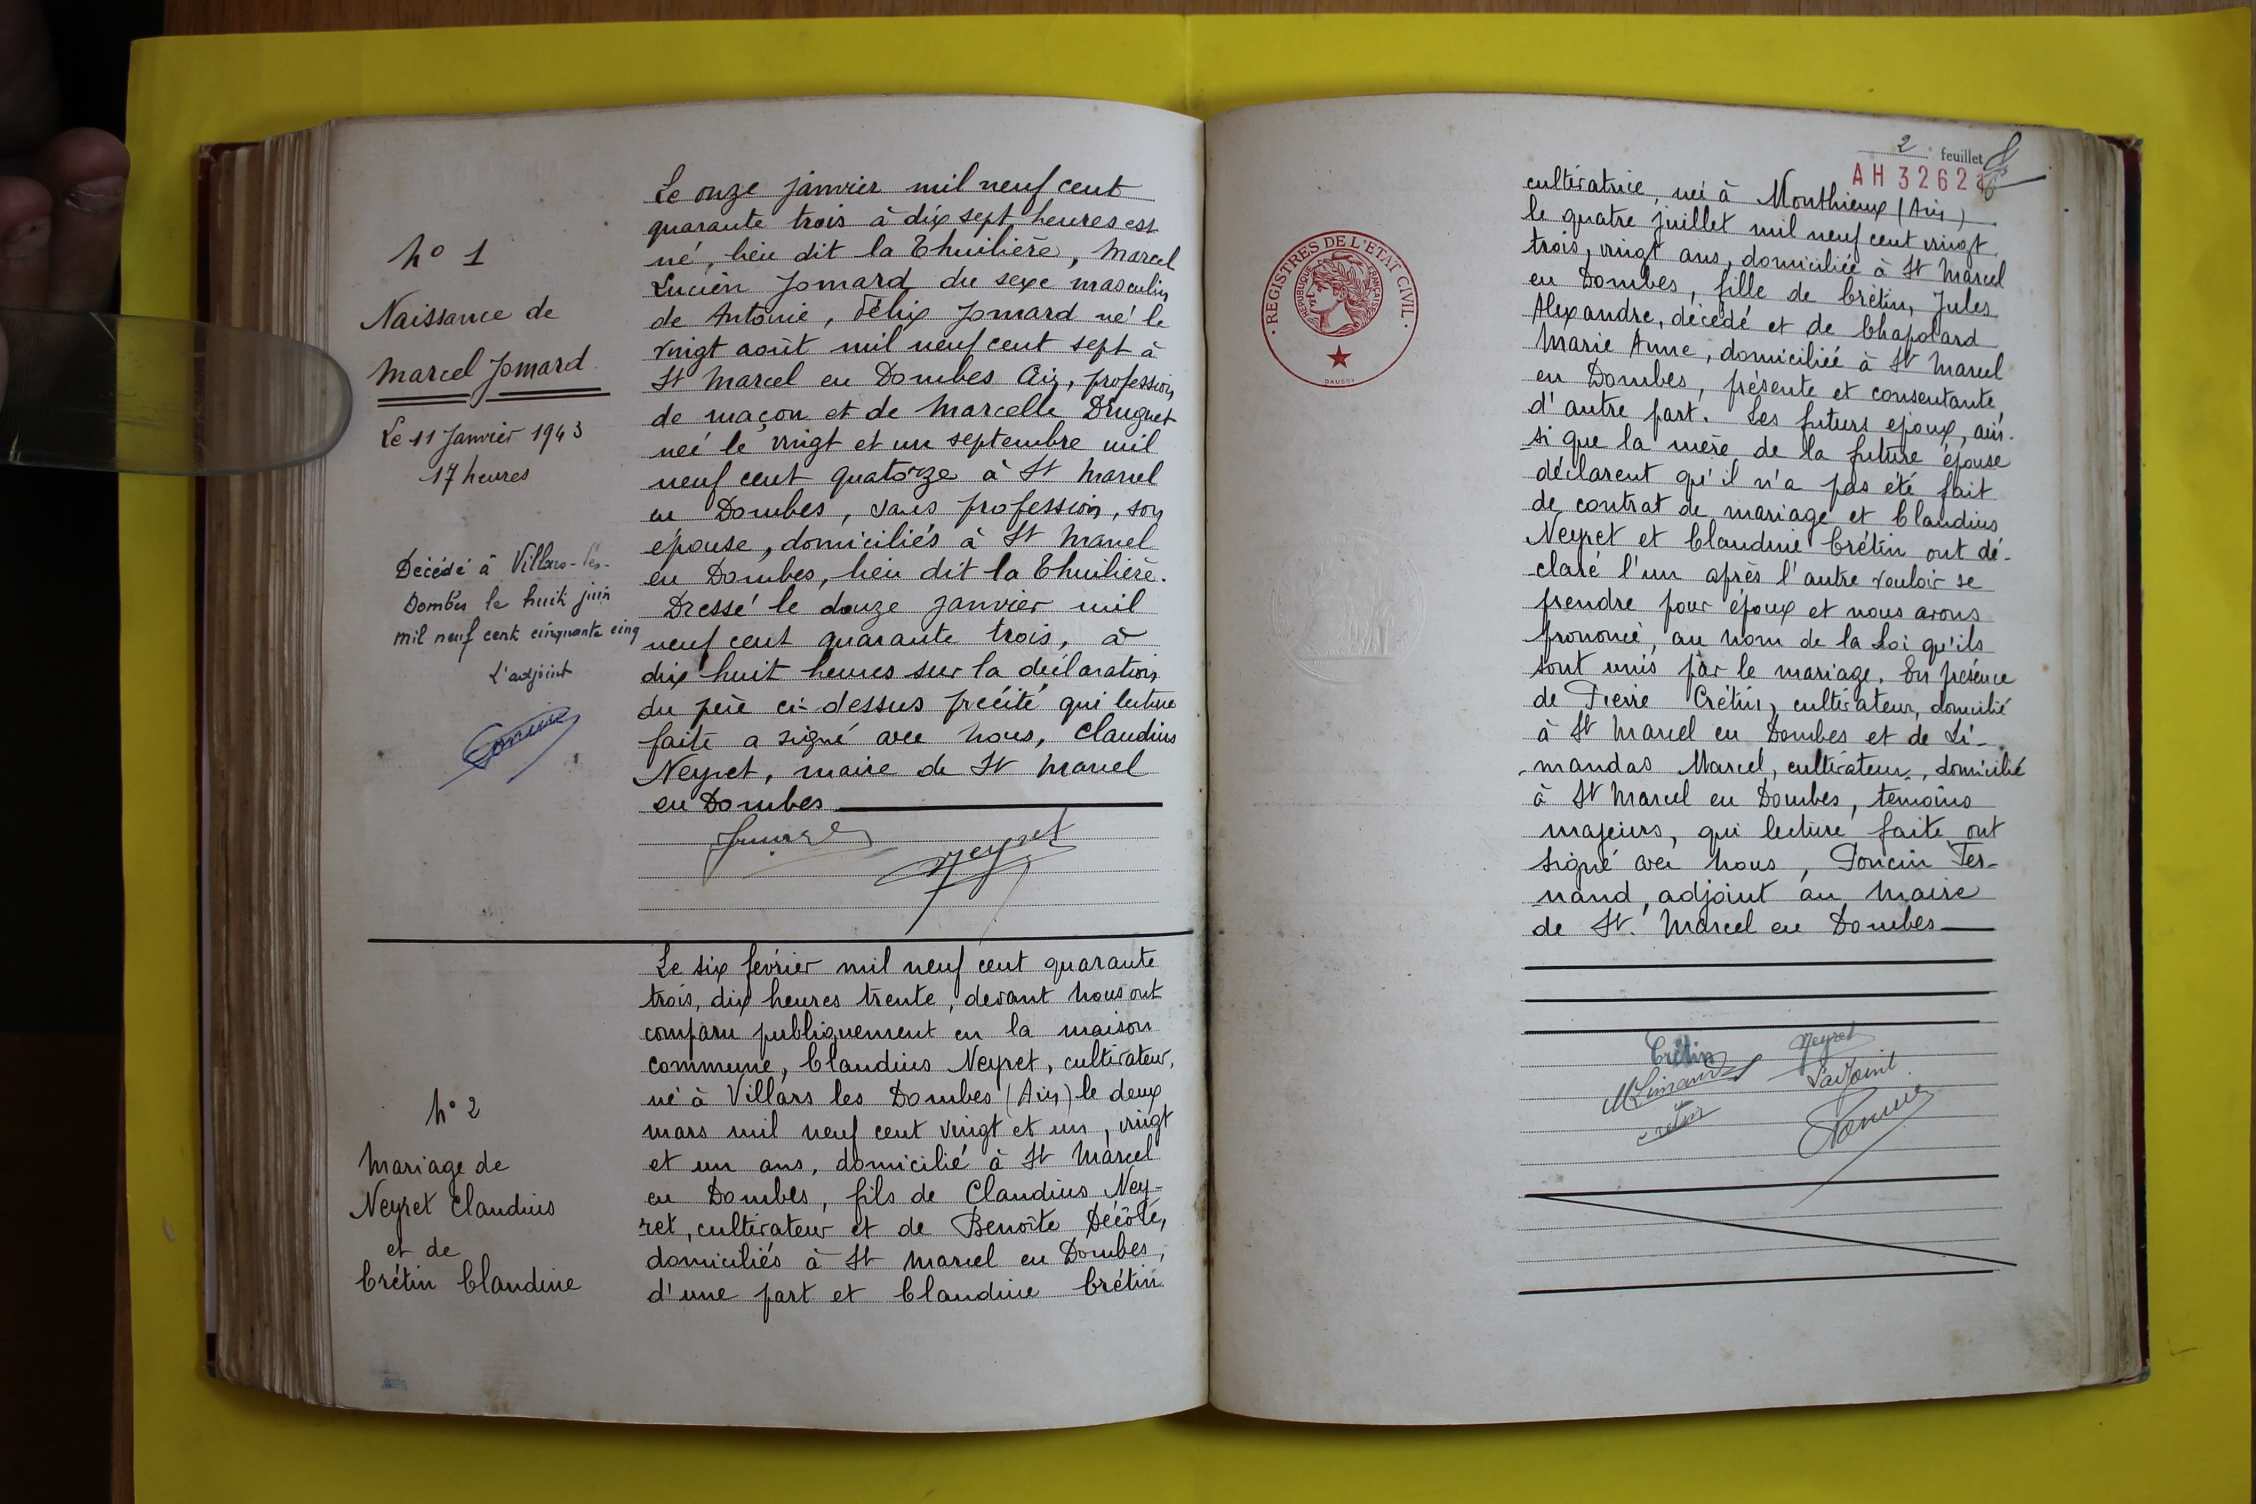 N° 1
Naissance de
Marcel Jomard
Le 11 Janvier 1943
17 heures
Décédé à Villars-les-
Dombes le huit juin
mil neuf cent cinquante cinq
L'adjoint
Le onze janvier mil neuf cent
quarante trois à dix sept heures est
né, lieu dit la Thuilière, Marcel
Lucien Jomard du sexe masculin
de Antoine, Félix Jomard né le
vingt août mil neuf cent sept à
St Marcel en Dombes Ain, profession
de maçon et de Marcelle Druguet
neé le vingt et un septembre mil
neuf cent quatorze à St Marcel
en Dombes, sans profession, son
épouse, domiciliés à St Marcel
en Dombes, lieu dit la Thuilière.
Dressé le douze janvier mil
neuf cent quarante trois, à
dix huit heures sur la déclaration
du père ci-dessus précité qui lecture
faite a signé avec nous, Claudius
Neyret, maire de St Marcel
en Dombes
Neyret
N° 2
Mariage de
Neyret Claudius
et de
Crétin Claudine
Le six février mil neuf cent quarante
trois, dix heures trente, devant nous ont
comparu publiquement en la maison
commune, Claudius Neyret, cultivateur,
né à Villars les Dombes (Ain) le deux
mars mil neuf cent vingt et un, vingt
et un ans, domicilié à St Marcel
en Dombes, fils de Claudius Ney-
ret, cultivateur et de Benoîte Décôte,
domiciliés à St Marcel en Dombes,
d'une part et Claudine Crétin
2 feuillet
AH 3262
REGISTRES DE L'ETAT CIVIL
REPUBLIQUE FRANÇAISE
cultivatrice, neé à Monthieux (Ain)
le quatre juillet mil neuf cent vingt
trois, vingt ans, domiciliée à St Marcel
en Dombes, fille de Crétin, Jules
Alexandre, décédé et de Chapolard
Marie Anne, domiciliée à St Marcel
en Dombes, présente et consentante,
d'autre part. Les futurs époux, ain-
si que la mère de la future épouse
déclarent qu'il n'a pas été fait
de contrat de mariage et Claudius
Neyret et Claudine Crétin ont dé-
claré l'un après l'autre vouloir se
prendre pour époux et nous avons
prononcé, au nom de la Loi qu'ils
sont unis par le mariage. En présence
de Pierre Crétin, cultivateur, domicilié
à St Marcel en Dombes et de Li-
mandas Marcel, cultivateur, domicilié
à St Marcel en Dombes, témoins
majeurs, qui lecture faite ont
signé avec nous, Poncin Fer-
nand, adjoint au Maire
de St. Marcel en Dombes
Crétin
Neyret
M Limandas
L'adjoint
Crétin
Poncin